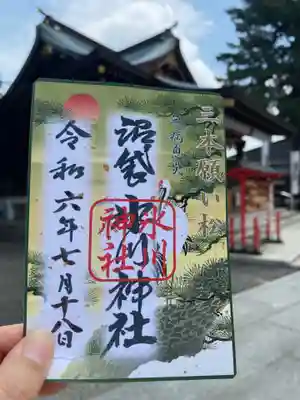 三本願い松
沼袋氷川神社
氷川
神社
令和六年七月十八日